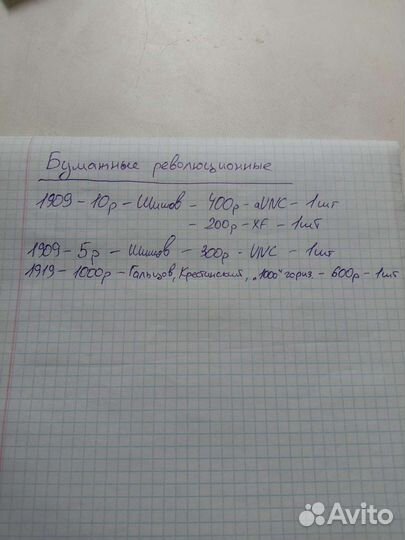 Бумажные революционные
1909 - 10р - Шипов - 400р - aUNC - 1шт
- 200р - XF - 1шт
1909 - 5р - Шипов - 300р - UNC - 1шт
1919 - 1000р - Гальцов, Крестинский, "1000" гориз. - 600р - 1шт
Avito